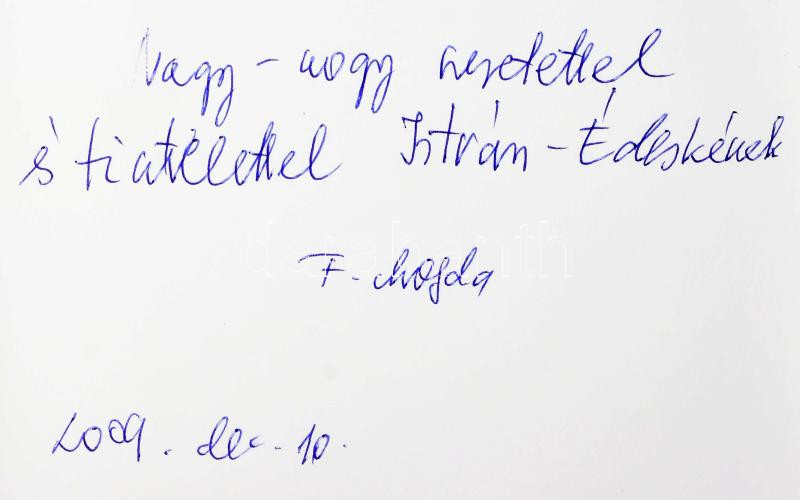 Nagy-nagy szeretettel
és tisztelettel István-Édeskének
F. Magda
2009. dec. 10.
darabanth